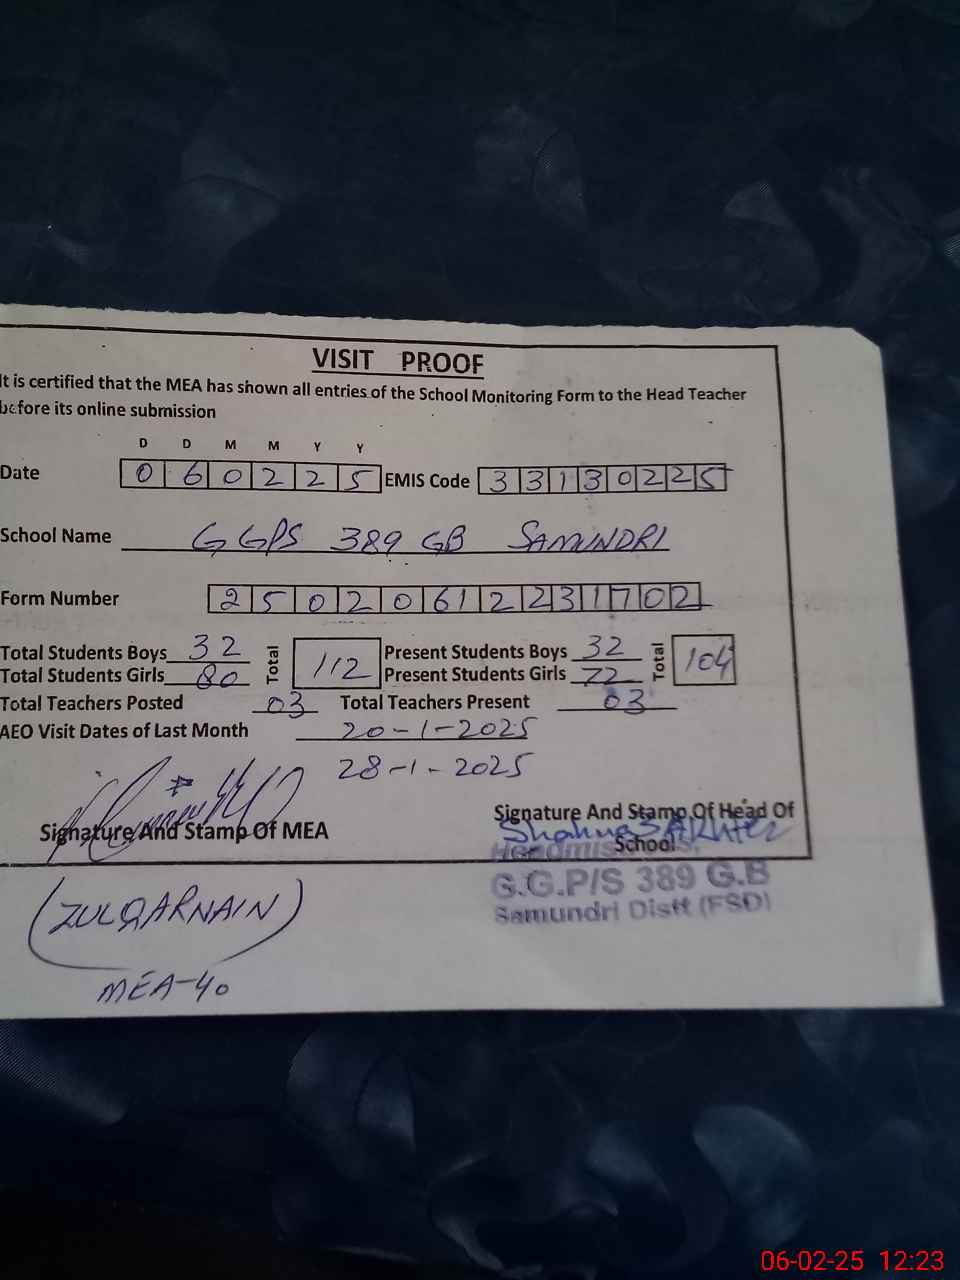 VISIT PROOF
It is certified that the MEA has shown all entries of the School Monitoring Form to the Head Teacher
before its online submission
D D M M Y Y
Date 060225 EMIS Code 33130225
School Name GGPS 389 GB SAMUNDRI
Form Number 25020612231702
Total Students Boys 32 Total 112 Present Students Boys 32 Total 104
Total Students Girls 80 Present Students Girls 72
Total Teachers Posted 03 Total Teachers Present 03
AEO Visit Dates of Last Month 20-1-2025
28-1-2025
Signature And Stamp Of MEA
Signature And Stamp Of Head Of
School
Shahnaz Akhter
Headmistress,
G.G.P/S 389 G.B
Samundri Distt (FSD)
(ZULQARNAIN)
MEA-40
06-02-25 12:23